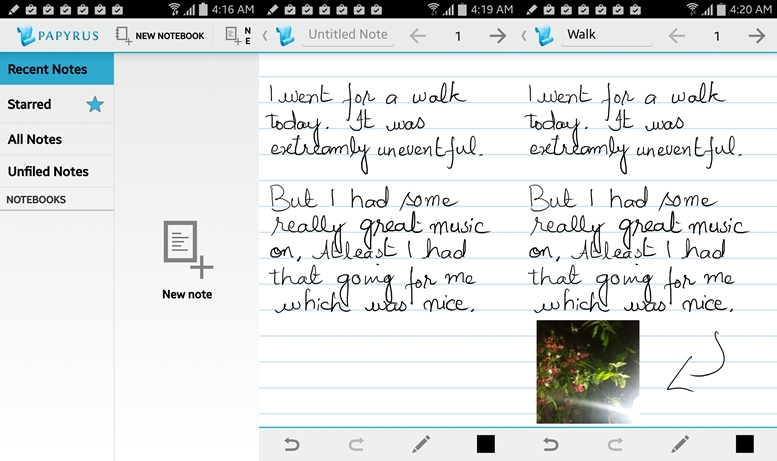 4:16 AM
PAPYRUS
NEW NOTEBOOK
N
E
Recent Notes
Starred
All Notes
Unfiled Notes
NOTEBOOKS
New note
4:19 AM
Untitled Note
1
I went for a walk
today. It was
extreamly uneventful.
But I had some
really great music
on, Atleast I had
that going for me
which was nice.
4:20 AM
Walk
1
I went for a walk
today. It was
extreamly uneventful.
But I had some
really great music
on, Atleast I had
that going for me
which was nice.